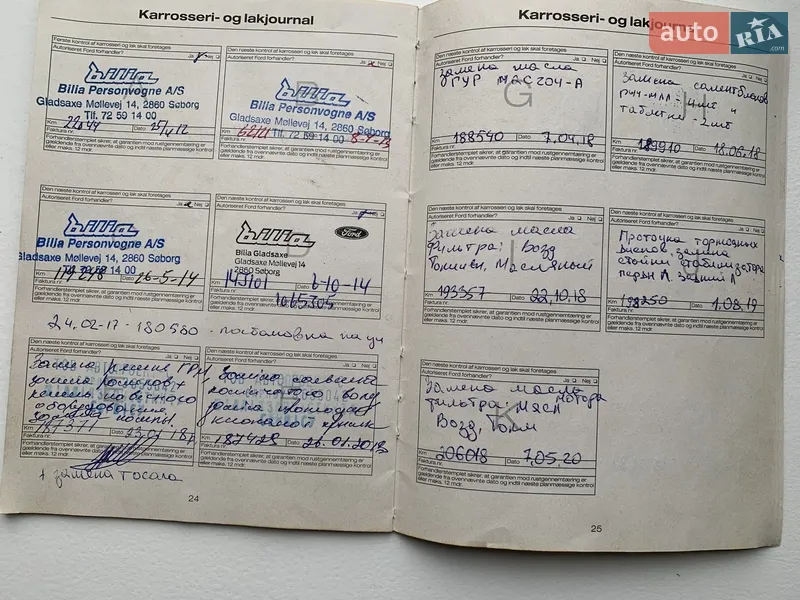 Karrosseri- og lakjournal
Første kontrol af karrosseri og lak skal foretages
Autoriseret Ford forhandler?
Ja Nej
Billa
Billa Personvogne A/S
Gladsaxe Møllevej 14, 2860 Søborg
Tlf. 72 59 14 00
Km Dato
Faktura nr.
Forhandlerstemplet sikrer, at garantien mod rustgennemtæring er
gældende fra ovennævnte dato og indtil næste planmæssige kontrol
eller maks. 12 mdr.
Den næste kontrol af karrosseri og lak skal foretages
Autoriseret Ford forhandler?
Ja Nej
Billa
Billa Personvogne A/S
Gladsaxe Møllevej 14, 2860 Søborg
Tlf. 72 59 14 00
Km Dato
Faktura nr.
Forhandlerstemplet sikrer, at garantien mod rustgennemtæring er
gældende fra ovennævnte dato og indtil næste planmæssige kontrol
eller maks. 12 mdr.
Den næste kontrol af karrosseri og lak skal foretages
Autoriseret Ford forhandler?
Ja Nej
Billa
Billa Personvogne A/S
Gladsaxe Møllevej 14, 2860 Søborg
Km Dato 16-5-14
Faktura nr.
Forhandlerstemplet sikrer, at garantien mod rustgennemtæring er
gældende fra ovennævnte dato og indtil næste planmæssige kontrol
eller maks. 12 mdr.
Den næste kontrol af karrosseri og lak skal foretages
Autoriseret Ford forhandler?
Ja Nej
Billa Ford
Billa Gladsaxe
Gladsaxe Møllevej 14
2860 Søborg
Km 143101 Dato 6-10-14
Faktura nr. 1065305
Forhandlerstemplet sikrer, at garantien mod rustgennemtæring er
gældende fra ovennævnte dato og indtil næste planmæssige kontrol
eller maks. 12 mdr.
24.02-17-180580 - постановка на уч
Den næste kontrol af karrosseri og lak skal foretages
Autoriseret Ford forhandler?
Ja Nej
Замена ремня ГРМ,
замена роликов,
ремня навесного
оборудования
Km 187371 Dato 23.01.18
Faktura nr.
Forhandlerstemplet sikrer, at garantien mod rustgennemtæring er
gældende fra ovennævnte dato og indtil næste planmæssige kontrol
eller maks. 12 mdr.
+ замена тосола
Den næste kontrol af karrosseri og lak skal foretages
Autoriseret Ford forhandler?
Ja Nej
Km 187428 Dato 26.01.2018
Faktura nr.
Forhandlerstemplet sikrer, at garantien mod rustgennemtæring er
gældende fra ovennævnte dato og indtil næste planmæssige kontrol
eller maks. 12 mdr.
24
Karrosseri- og lakjournal
auto RIA.com
Den næste kontrol af karrosseri og lak skal foretages
Autoriseret Ford forhandler?
Ja Nej
G
Замена масла
ГУР МАС204-А
Km 188540 Dato 7.04.18
Faktura nr.
Forhandlerstemplet sikrer, at garantien mod rustgennemtæring er
gældende fra ovennævnte dato og indtil næste planmæssige kontrol
eller maks. 12 mdr.
Den næste kontrol af karrosseri og lak skal foretages
Autoriseret Ford forhandler?
Ja Nej
H
Замена сайлентблоков
4шт и
таблетки - 2шт
Km 189910 Dato 18.06.18
Faktura nr.
Forhandlerstemplet sikrer, at garantien mod rustgennemtæring er
gældende fra ovennævnte dato og indtil næste planmæssige kontrol
eller maks. 12 mdr.
Den næste kontrol af karrosseri og lak skal foretages
Autoriseret Ford forhandler?
Ja Nej
I
Замена масла
Фильтра: Возд
Топливн, Масляный
Km 193357 Dato 22,10.18
Faktura nr.
Forhandlerstemplet sikrer, at garantien mod rustgennemtæring er
gældende fra ovennævnte dato og indtil næste planmæssige kontrol
eller maks. 12 mdr.
Den næste kontrol af karrosseri og lak skal foretages
Autoriseret Ford forhandler?
Ja Nej
J
Проточка тормозных
дисков, замена
стойки стабилизатора
Km 198250 Dato 1.08.19
Faktura nr.
Forhandlerstemplet sikrer, at garantien mod rustgennemtæring er
gældende fra ovennævnte dato og indtil næste planmæssige kontrol
eller maks. 12 mdr.
Den næste kontrol af karrosseri og lak skal foretages
Autoriseret Ford forhandler?
Ja Nej
K
Замена масла мотора
Фильтра: Масл
Возд, Топл
Km 206018 Dato 7,05,20
Faktura nr.
Forhandlerstemplet sikrer, at garantien mod rustgennemtæring er
gældende fra ovennævnte dato og indtil næste planmæssige kontrol
eller maks. 12 mdr.
25